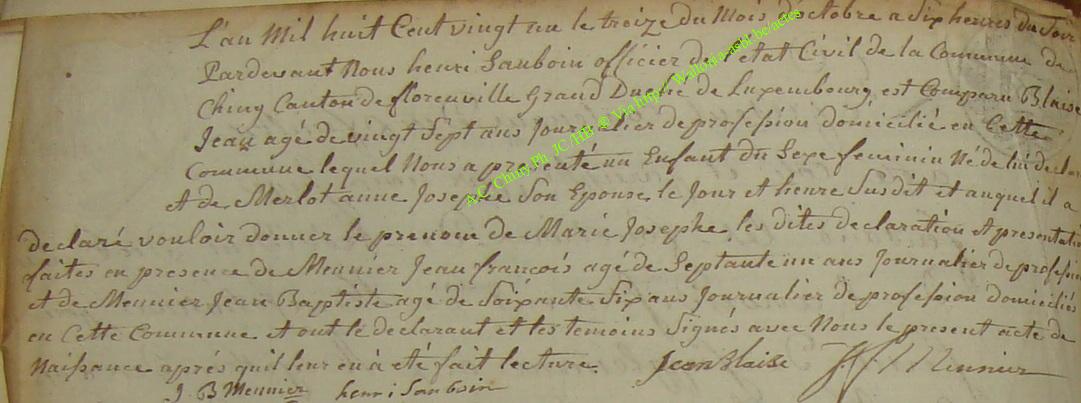 L'an Mil huit Cent vingt un le treize du Mois d'octobre a Six heures du Soir
Pardevant Nous henri Sauboin officier de l'etat Civil de la Commune de
Chiny Canton de florenville Grand Duché de Luxembourg est Comparu Blaise
Jean agé de vingt Sept ans Journalier de profession domicilié en Cette
Commune lequel Nous a presenté un Enfant du Sexe feminin Né de lui declarant
et de Merlot anne Josephe Son Epouse le Jour et heure Susdit et auquel il a
declaré vouloir donner le prenom de Marie Josephe. les dites declaration et presentation
faites en presence de Meunier Jean françois agé de Septante un ans Journalier de profession
et de Meunier Jean Baptiste agé de Soixante Six ans Journalier de profession domiciliés
en Cette Commune et ont le declarant et les temoins Signés avec Nous le present acte de
Naissance après qu'il leur en à été fait lecture. Jean Blaise J. f. Meunier
J. B Meunier henri Sauboin
A.C. Chiny Ph. JC /HB ® Via http:// Wallonia-asbl.be/actes